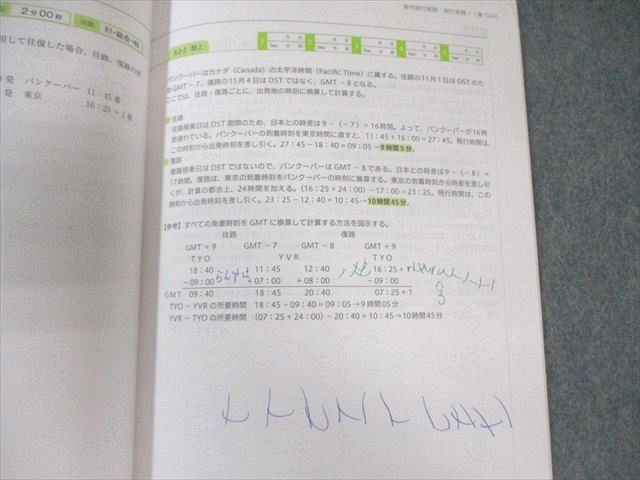 2分00秒
出題 R1-総合-46
用して往復した場合、往路、復路の所
発 バンクーバー 11:45着
発 東京 16:25+1着
海外旅行実務 旅行実務・1章 OAG
4-2-3 問2
1 2 3 4 5
バンクーバーはカナダ（Canada）の太平洋時間（Pacific Time）に属する。往路の11月1日はDSTのた
めGMT－7、復路の11月4日はDSTではなく、GMT－8となる。
ここでは、往路・復路ごとに、出発地の時刻に換算して計算する。
往路
往路搭乗日はDST期間のため、日本との時差は9－（－7）＝16時間。よって、バンクーバーが16時
間遅れている。バンクーバーの到着時刻を東京時間に直すと、11:45＋16:00＝27:45。飛行時間は、
この時刻から出発時刻を差し引く。27:45－18:40＝09:05→9時間5分。
復路
復路搭乗日はDSTではないので、バンクーバーはGMT－8である。日本との時差は9－（－8）＝
17時間。復路は、東京の到着時刻をバンクーバーの時刻に換算する。東京の到着時刻から時差を差し引
くが、計算の都合上、24時間を加える。（16:25＋24:00）－17:00＝23:25。飛行時間は、この
時刻から出発時刻を差し引く。23:25－12:40＝10:45→10時間45分。
【参考】すべての発着時刻をGMTに換算して計算する方法を図示する。
往路 復路
GMT＋9 GMT－7 GMT－8 GMT＋9
TYO YVR TYO
18:40 11:45 12:40 16:25＋
－09:00 ＋07:00 ＋08:00 －09:00
GMT 09:40 18:45 20:40 07:25＋1
TYO－YVRの所要時間 18:45－09:40＝09:05→9時間05分
YVR－TYOの所要時間 （07:25＋24:00）－20:40＝10:45→10時間45分